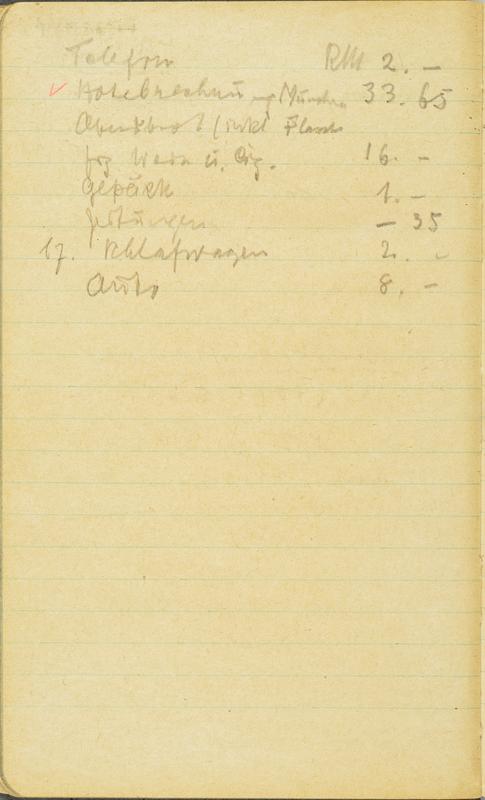 Telefon RM 2. —
✓ Hotelrechnung München 33. 65
Abendbrot (inkl Flasche
Wein u. Cig. 16. -
Gepäck 1. -
Zeitungen — 35
17. Schlafwagen 2. -
Auto 8. -